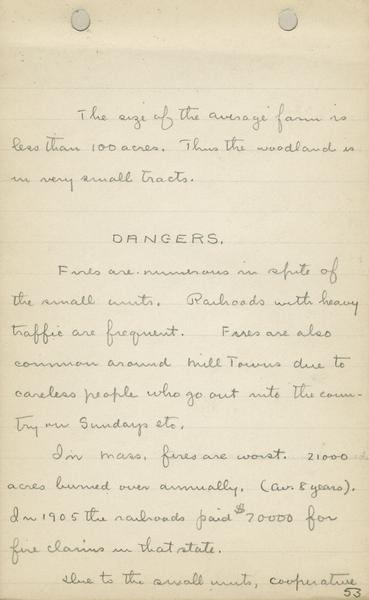 The size of the average farm is
less than 100 acres. Thus the woodland is
in very small tracts.
DANGERS.
Fires are numerous in spite of
the small units. Railroads with heavy
traffic are frequent. Fires are also
common around Mill Towns due to
careless people who go out into the coun-
try on Sundays etc.
In Mass. fires are worst. 21000
acres burned over annually. (Av. 8 years).
In 1905 the railroads paid $70000 for
fire claims in that state.
Due to the small units, cooperative
53